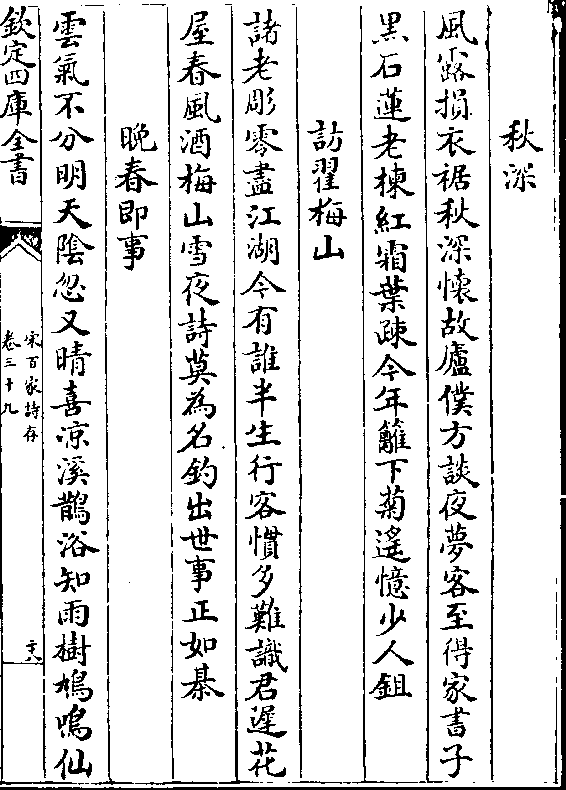 秋深
風露損衣裾秋深懷故廬僕方談夜夢客至得家書子
黑石蓮老楝紅霜葉疎今年籬下菊遙憶少人鉏
訪翟梅山
諸老彫零盡江湖今有誰半生行客慣多難識君遲花
屋春風酒梅山雪夜詩莫為名釣出世事正如棊
晚春即事
雲氣不分明天陰忽又晴喜凉溪鵲浴知雨樹鳩鳴仙
欽定四庫全書
宋百家詩存
卷三十九